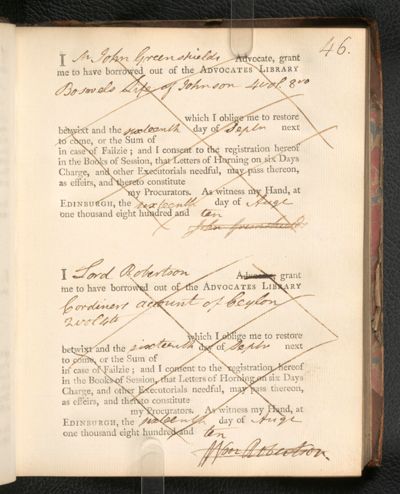 46.
I Mr John Greenshields Advocate, grant
me to have borrowed out of the ADVOCATES LIBRARY
Boswels Life of Johnson 4 vol 8vo
which I oblige me to restore
betwixt and the sixteenth day of Septr next
to come, or the Sum of
in case of Failzie ; and I consent to the registration hereof
in the Books of Session, that Letters of Horning on six Days
Charge, and other Executorials needful, may pass thereon,
as effeirs, and thereto constitute
my Procurators. As witness my Hand, at
EDINBURGH, the sixteenth day of Augt
one thousand eight hundred and ten
John Greenshields
I Lord Robertson Advocate, grant
me to have borrowed out of the ADVOCATES LIBRARY
Cordiners account of Ceylon
2 vol 4to
which I oblige me to restore
betwixt and the sixteenth day of Septr next
to come, or the Sum of
in case of Failzie ; and I consent to the registration hereof
in the Books of Session, that Letters of Horning on six Days
Charge, and other Executorials needful, may pass thereon,
as effeirs, and thereto constitute
my Procurators. As witness my Hand, at
EDINBURGH, the sixteenth day of Augt
one thousand eight hundred and ten
Robertson